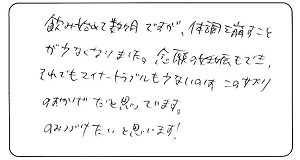 飲み始めて数ヶ月ですが、体調を崩すこと
が少なくなりました。念願の妊娠もでき、
それでもマイナートラブルも少ないのは この
のおかげだと思っています。
のみつづけたいと思います!